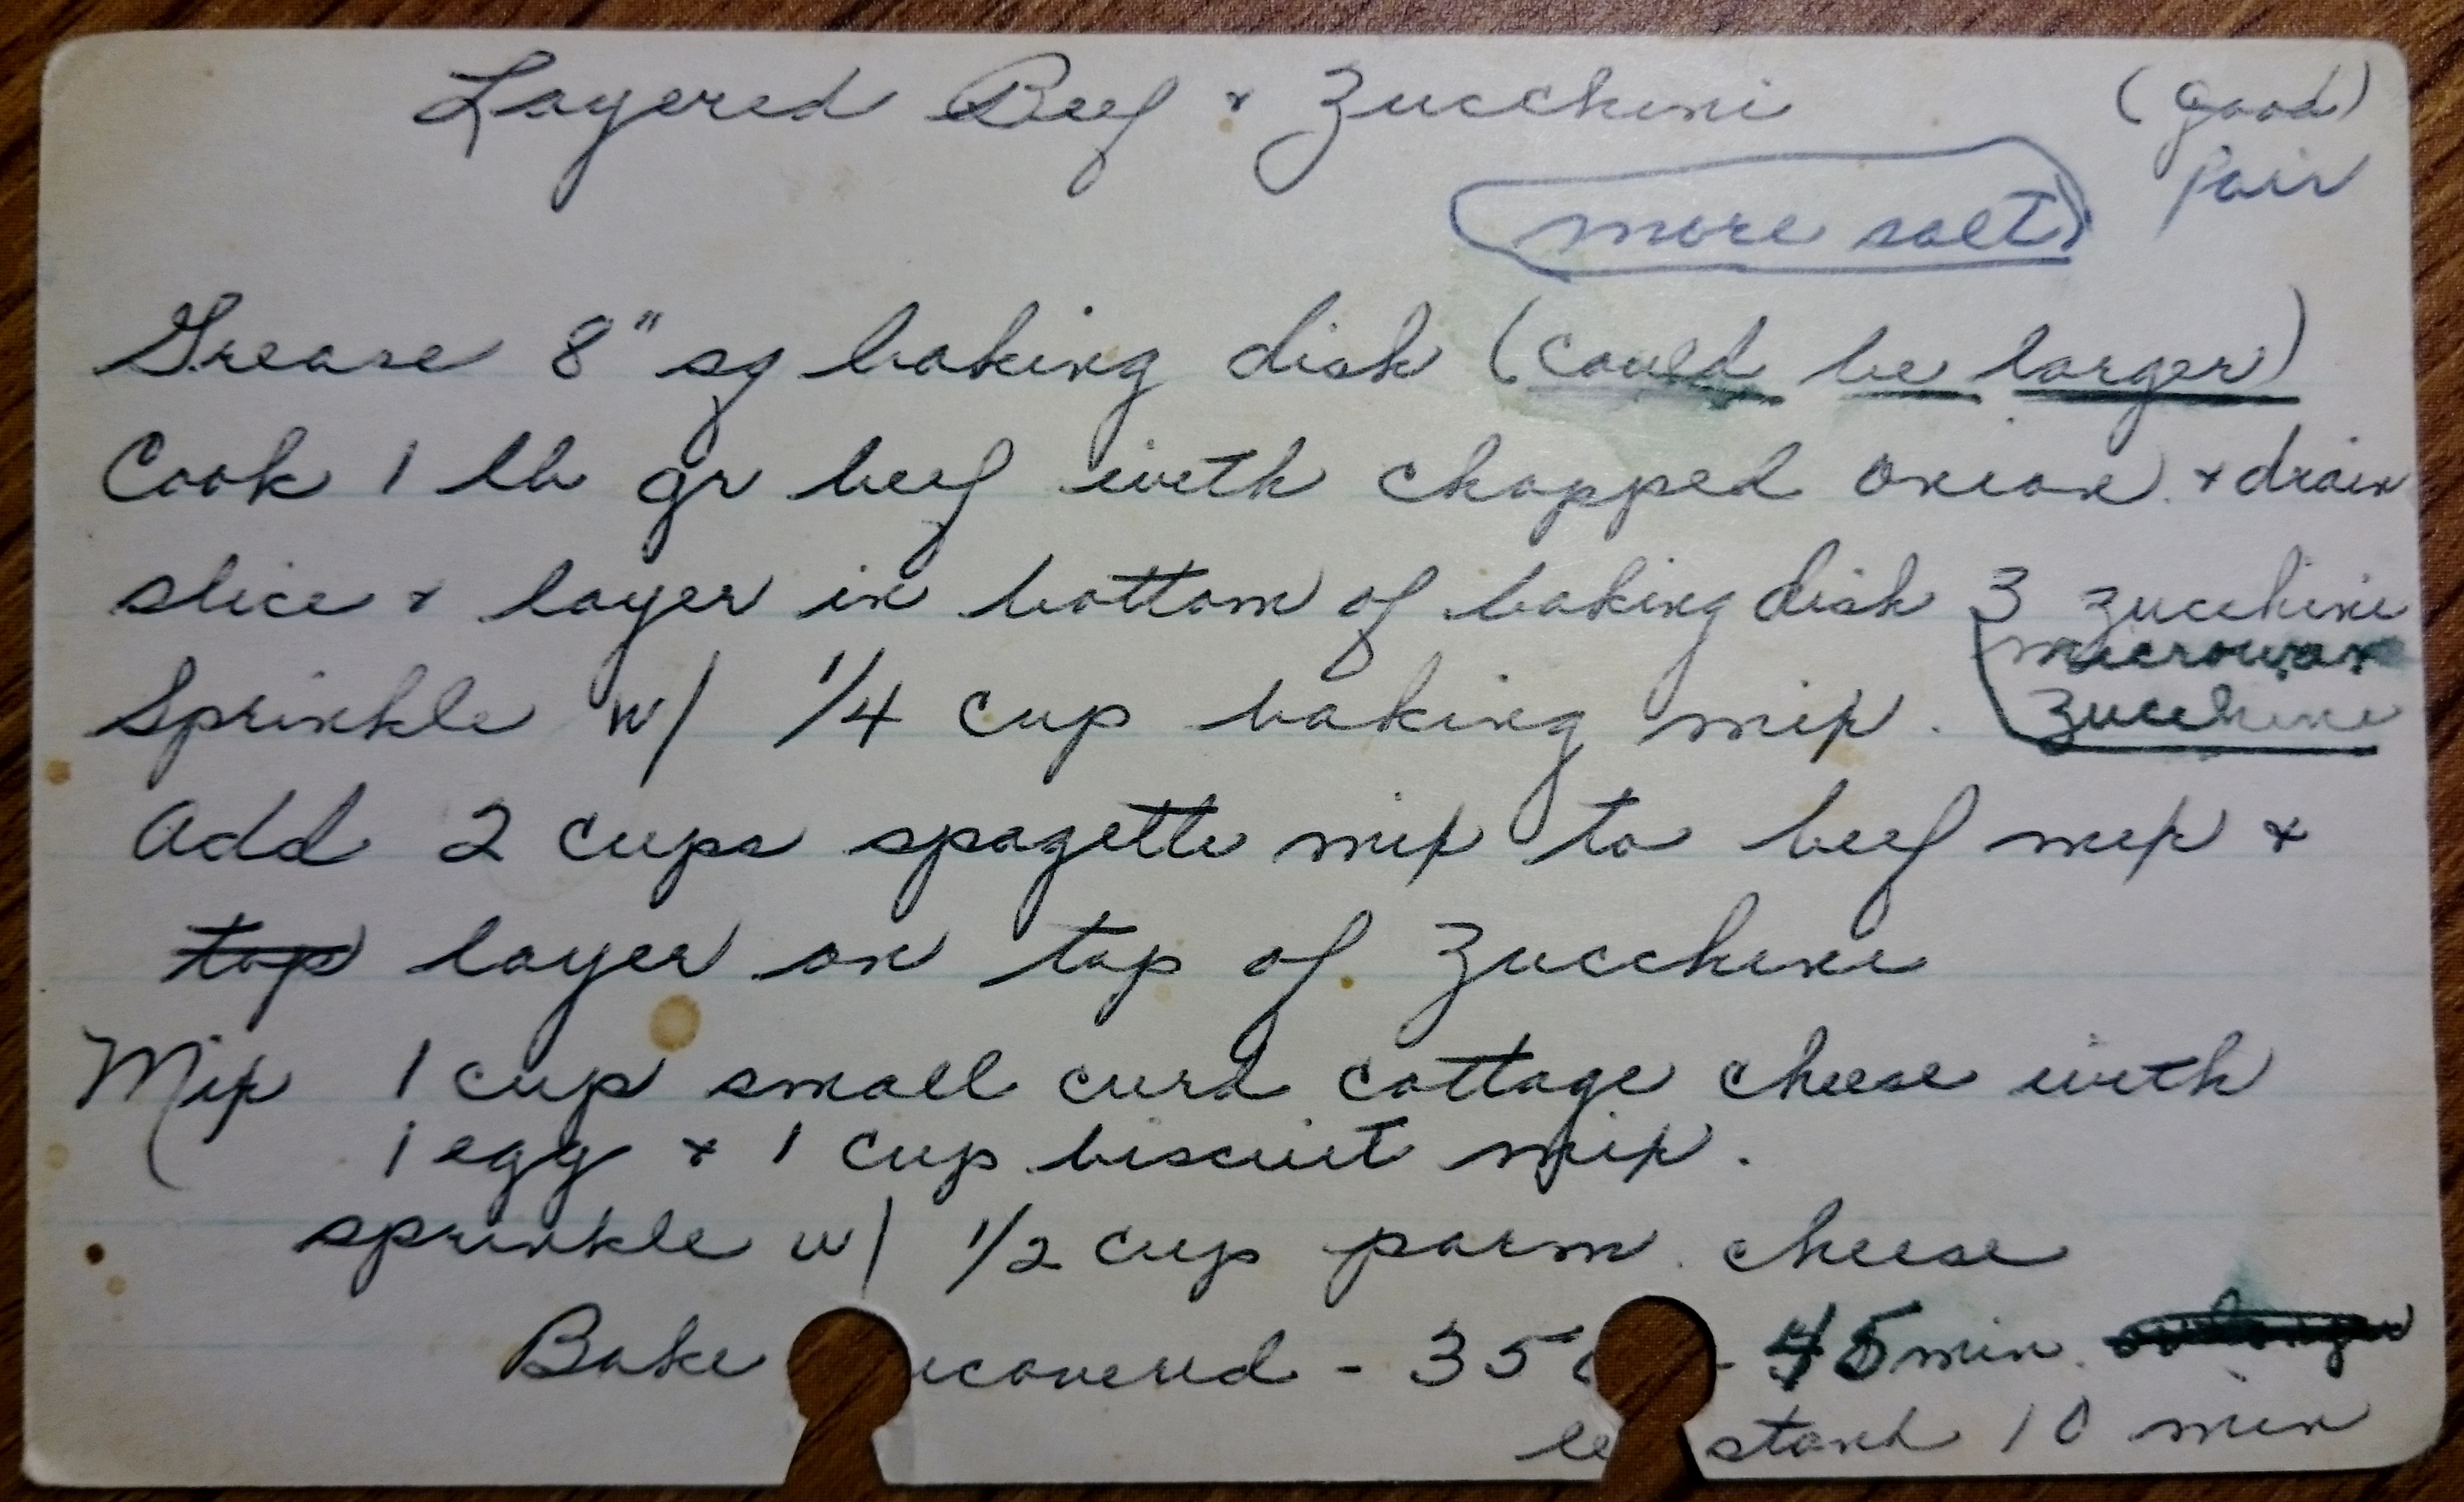 Layered Beef & Zucchini (good)
fair
more salt
Grease 8" sq baking dish (could be larger)
Cook 1 lb gr beef with chopped onion & drain
slice & layer in bottom of baking dish 3 zucchini
microwave
zucchini
Sprinkle w/ 1/4 cup baking mix.
Add 2 cups spagetti mix to beef mix &
top layer on top of zucchini
Mix 1 cup small curd cottage cheese with
1 egg & 1 cup biscuit mix.
sprinkle w/ 1/2 cup parm. cheese
Bake uncovered - 350 - 45 min.
let stand 10 min